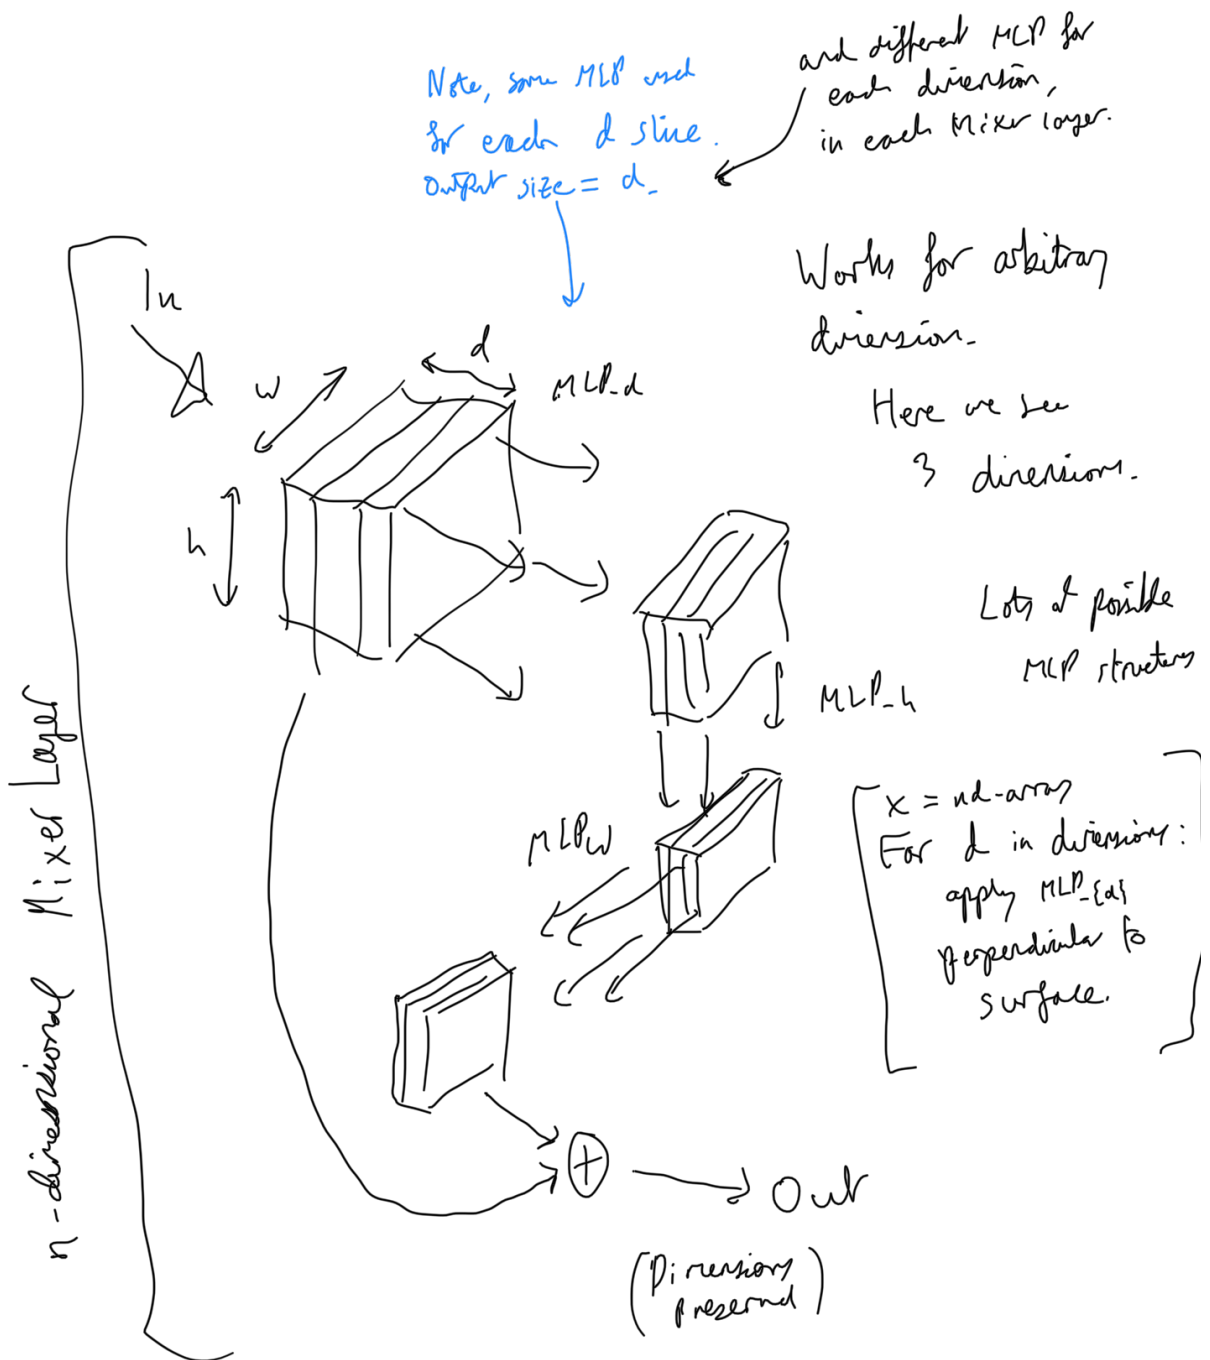 Note, same MLP used
for each d slice.
Output size = d.
and different MLP for
each dimension,
in each Mixer layer.
Works for arbitrary
dimension.
Here we see
3 dimensions.
Lots of possible
MLP structures
In
w
d
MLP_d
h
MLP_h
MLP_w
x = nd-array
For d in dimensions:
apply MLP_{d}
perpendicular to
surface.
+
Out
(Dimensions
preserved)
n-dimensional Mixer Layer